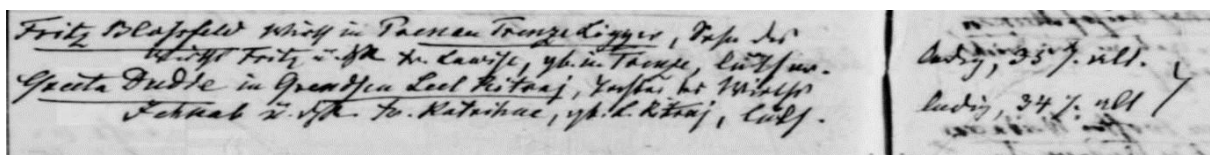 Fritz Blasfeld Wirth in Pernau Trenze Ligger, Sohn des
Wirths Fritz u. dss. Fr. Lawise, gb. in Trenze, luth.
Greeta Dudde in Grendsen Leel Kitraj, Tochter des Wirths
Jehkab u. dss. Fr. Katrihne, gb. L. Kitraj, luth.
ledig, 35 J. alt.
ledig, 34 J. alt